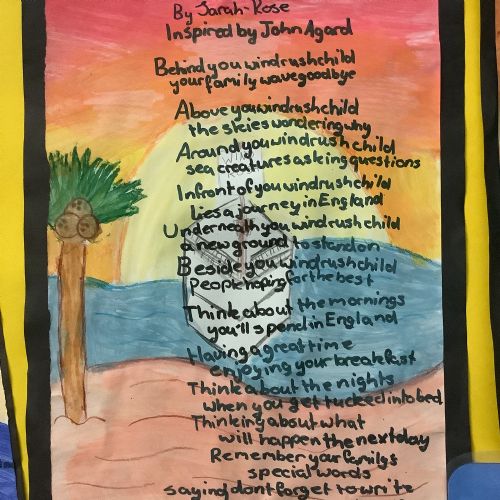 By Sarah-Rose
Inspired by John Agard
Behind you windrush child
your family wave goodbye
Above you windrush child
the skies wondering why
Around you windrush child
sea creatures asking questions
Infront of you windrush child
Lies a journey in England
Underneath you windrush child
a new ground to stand on
Beside you windrush child
People hoping for the best
Think about the mornings
you'll spend in England
Having a great time
enjoying your breakfast
Think about the nights
when you get tucked into bed
Thinking about what
will happen the next day
Remember your family's
special words
saying dont forget to write